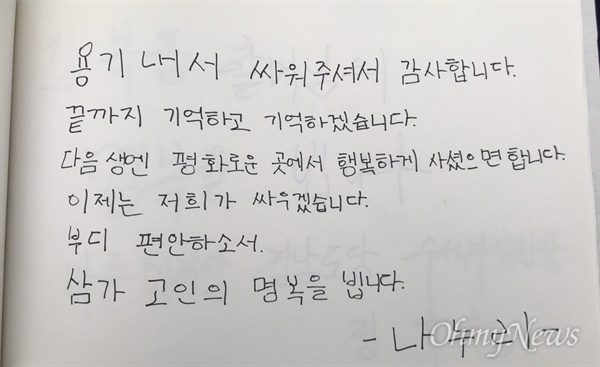 용기내서 싸워주셔서 감사합니다.
끝까지 기억하고 기억하겠습니다.
다음 생엔 평화로운 곳에서 행복하게 사셨으면 합니다.
이제는 저희가 싸우겠습니다.
부디 편안하소서.
삼가 고인의 명복을 빕니다.
OhmyNews